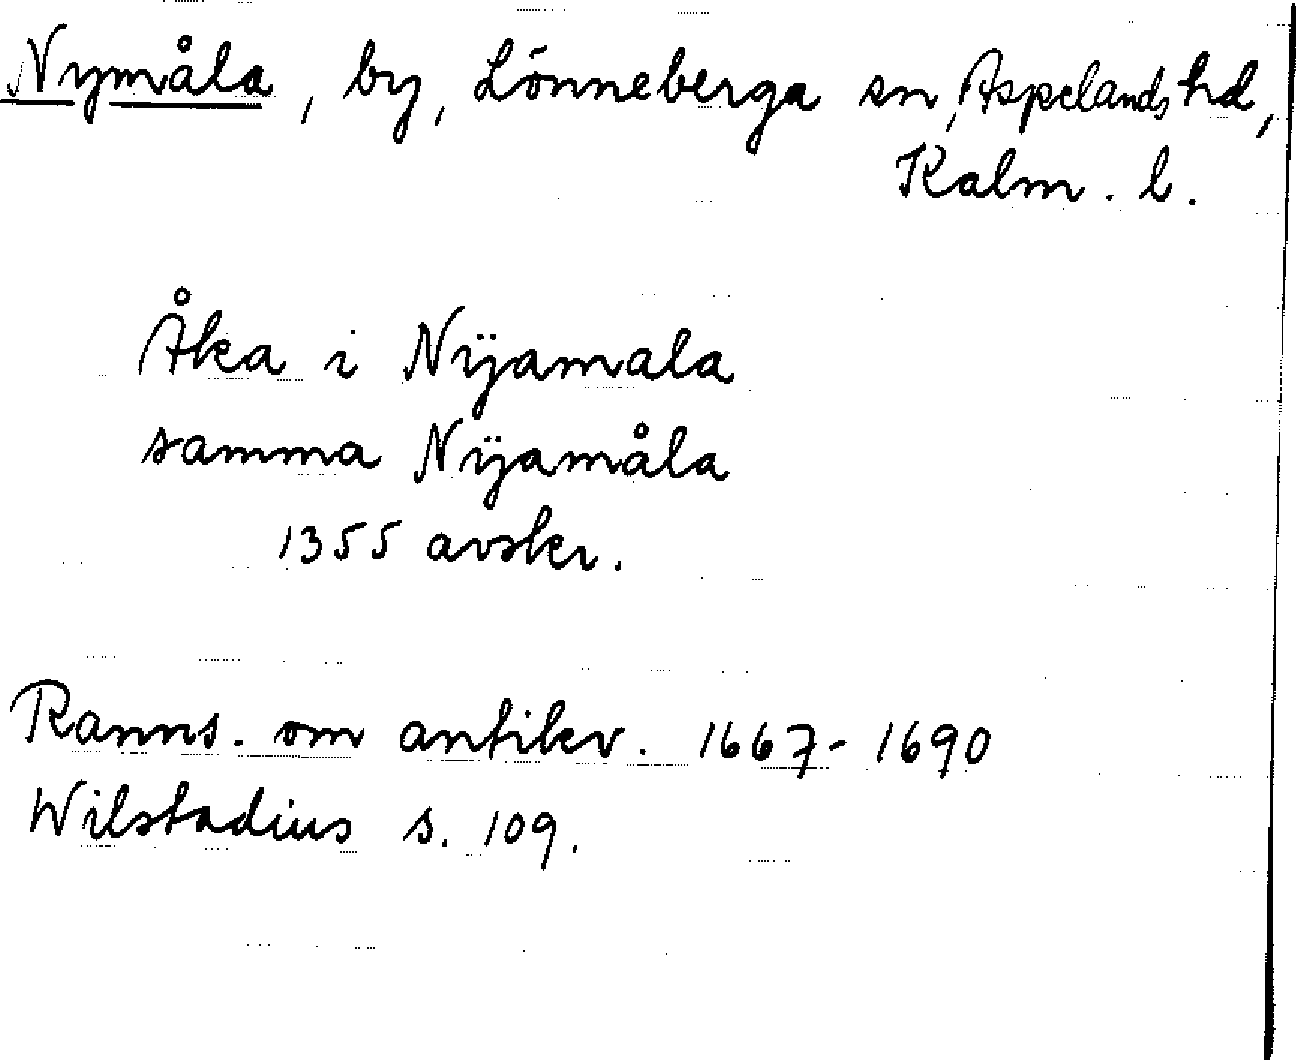 Nymåla, by, Lönneberga sn, Aspelands hd,
Kalm. l.
Åka i Nÿamala
samma Nÿamåla
1355 avskr.
Ranns. om antikv. 1667-1690
Wilstadius s. 109.